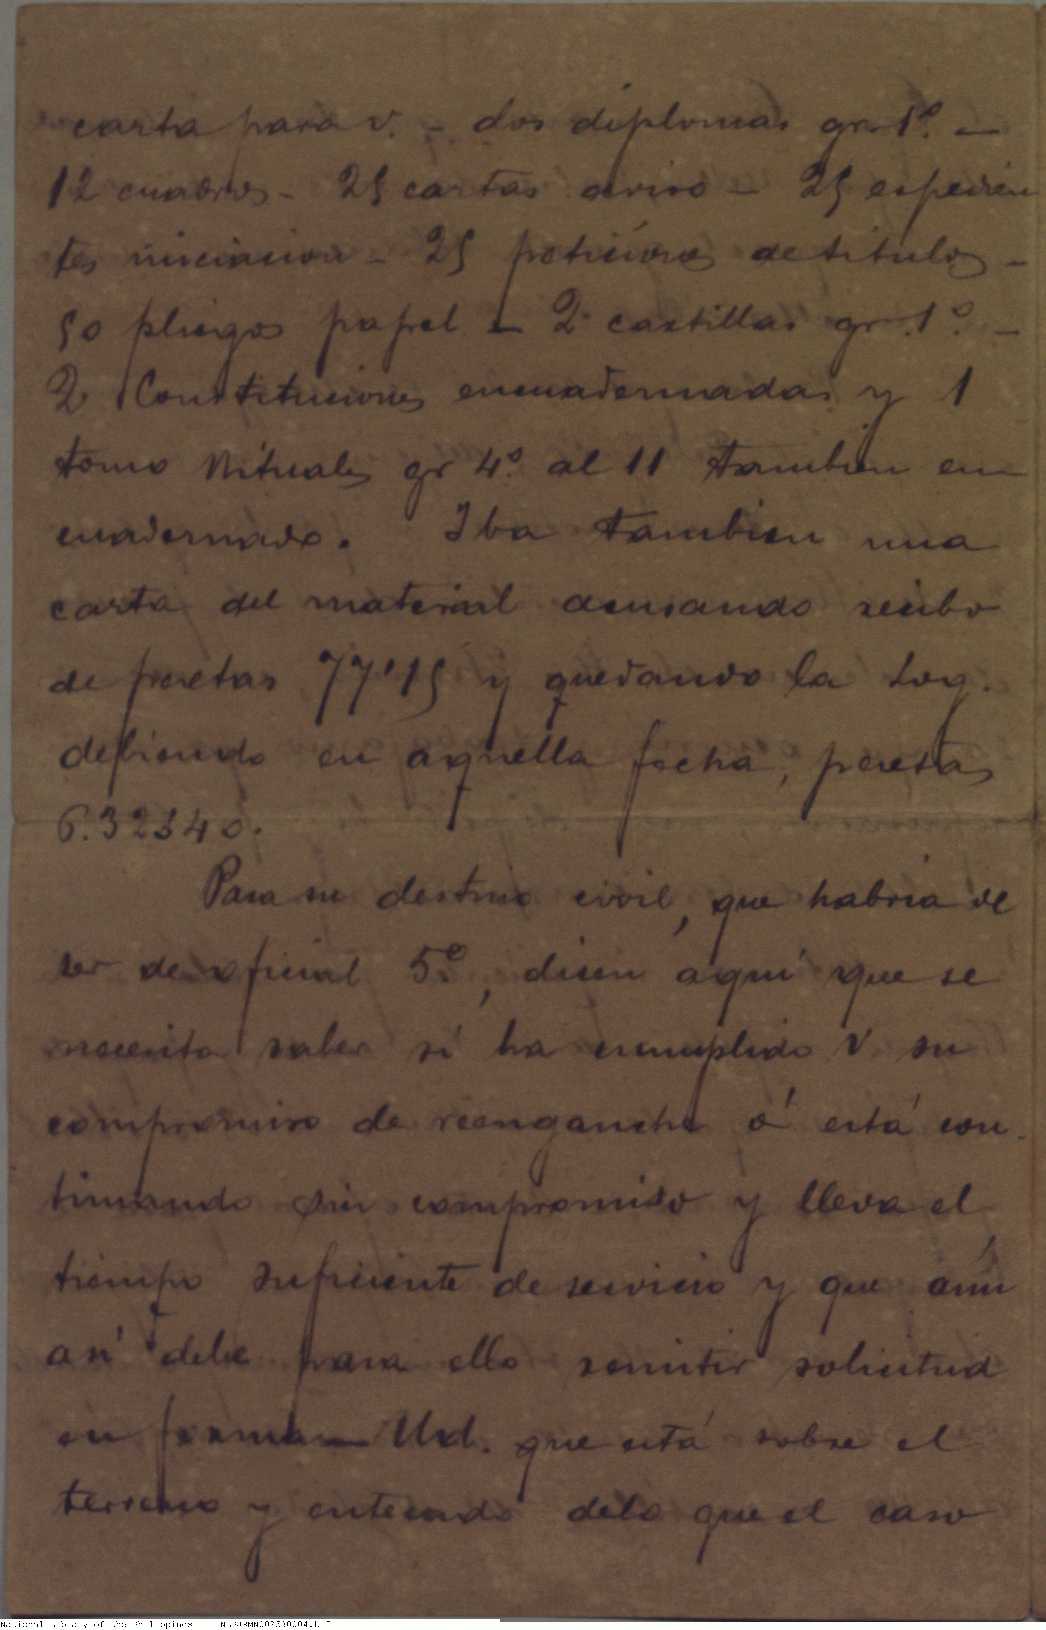 carta para v. - dos diplomas gr. 1º. -
12 cuadros - 25 cartas aviso - 25 espedien
tes iniciacion - 25 peticiones de titulos -
50 pliegos papel - 2 cartillas gr. 1º. -
2 Constituciones encuadernadas y 1
tomo Rituales gr 4º. al 11 tambien en
cuadernado. Iba tambien una
carta del material acusando recibo
de pesetas 77'15 y quedando la Log.
debiendo en aquella fecha, pesetas
6.32340.
Para su destino civil, que habria de
ser de oficial 5º, dicen aquí que se
necesita saber si ha cumplido V su
compromiso de reenganche ó está con
tinuando sin compromiso y lleva el
tiempo suficiente de servicio y que aún
así debe para ello remitir solicitud
en forma - Ud. que está sobre el
terreno y enterado delo que el caso
National Library of the Philippines